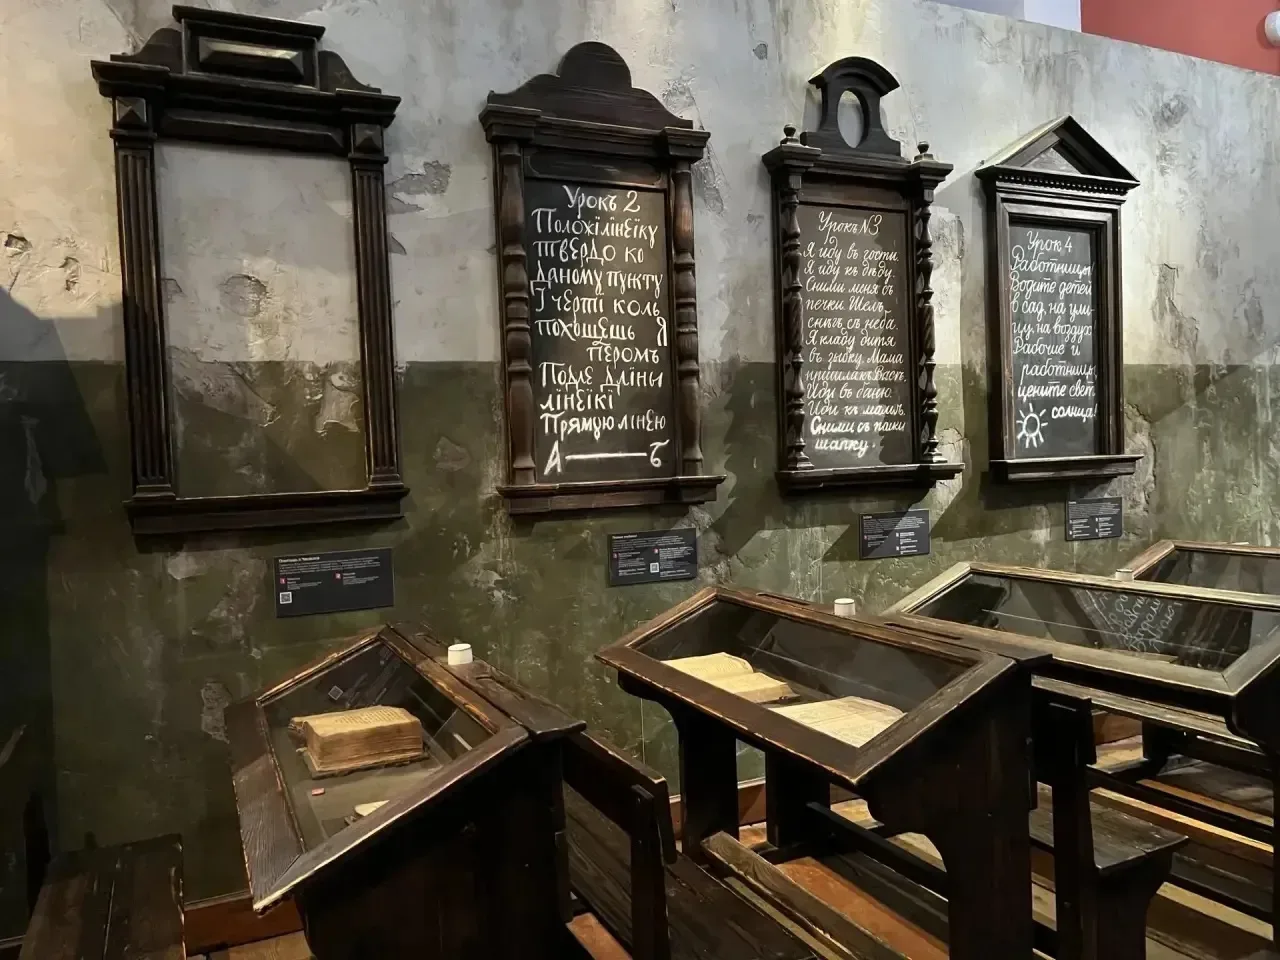 Урокъ 2
Положі лінѣику
твердо ко
даному пункту
І черті коль
похощешь Я
перомъ
Подле длины
лінѣікі
Прямую лінѣю
А — Б
Урокъ №3
Я иду въ гости.
Я иду къ дѣду.
Сними меня съ
печки. Шелъ
снѣгъ съ неба.
Я кладу дитя
въ зыбку. Мама
Иди въ баню.
Иди къ мамѣ.
Сними съ палки
шапку.
Урок 4
Работницы
Водите детей
в сад, на ули-
цу, на воздух
Рабочие и
работницы
цените свет
солнца!